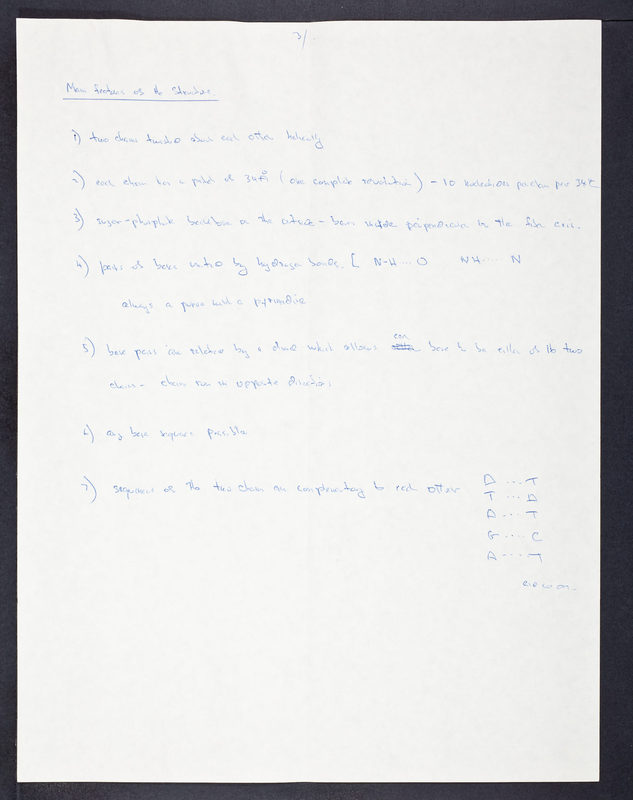 3/.
Main features of the Structure
1) two chains twisted about each other helically
2) each chain has a pitch of 34Å (one complete revolution) - 10 nucleotides per chain per 34Å
3) sugar-phosphate backbone on the outside - bases inside perpendicular to the fibre axis.
4) pairs of bases united by hydrogen bonds. [ N-H ... O NH .... N
always a purine with a pyrimidine
5) base pairs are related by a diad which allows each base to be either of the two
chains - chains run in opposite directions
6) any base sequence possible
7) sequences of the two chains are complementary to each other A ... T
T ... A
A ... T
G .... C
A .... T
and so on.